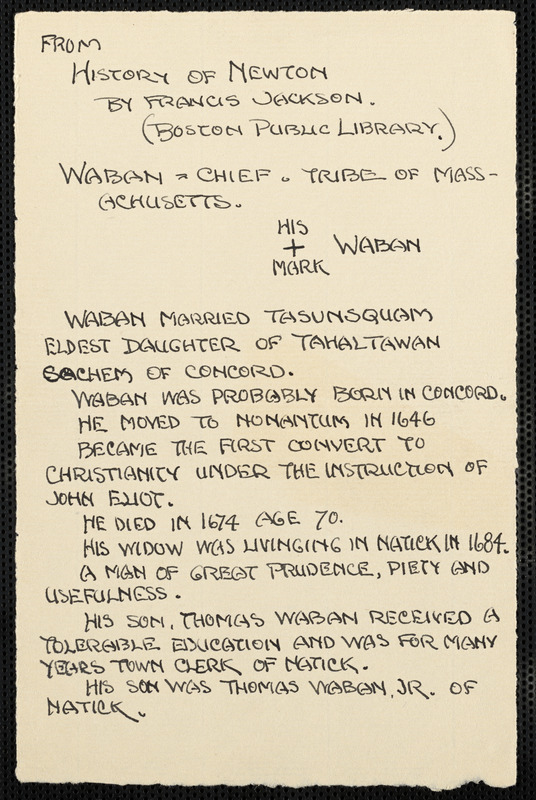 FROM
HISTORY OF NEWTON
BY FRANCIS JACKSON.
(BOSTON PUBLIC LIBRARY.)
WABAN = CHIEF. TRIBE OF MASS-
ACHUSETTS.
HIS
+ WABAN
MARK
WABAN MARRIED TASUNSQUAM
ELDEST DAUGHTER OF TAHALTAWAN
SACHEM OF CONCORD.
WABAN WAS PROBABLY BORN IN CONCORD.
HE MOVED TO NONANTUM IN 1646
BECAME THE FIRST CONVERT TO
CHRISTIANITY UNDER THE INSTRUCTION OF
JOHN ELIOT.
HE DIED IN 1674 AGE 70.
HIS WIDOW WAS LIVINGING IN NATICK IN 1684.
A MAN OF GREAT PRUDENCE, PIETY AND
USEFULNESS.
HIS SON, THOMAS WABAN RECEIVED A
TOLERABLE EDUCATION AND WAS FOR MANY
YEARS TOWN CLERK OF NATICK.
HIS SON WAS THOMAS WABAN, JR. OF
NATICK.